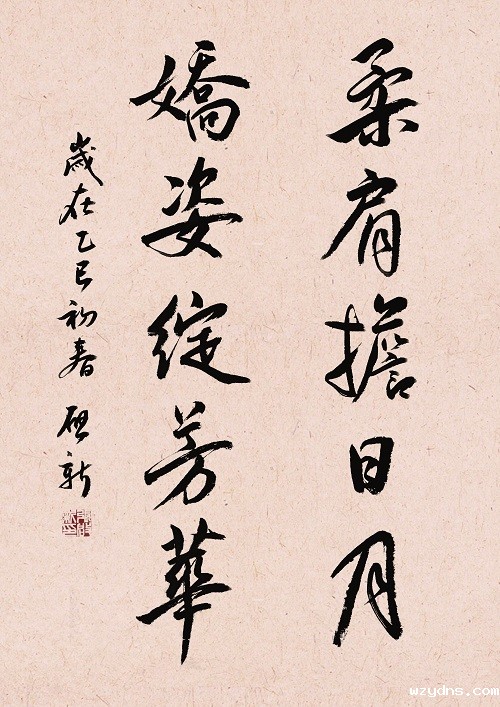 柔肩擔日月
嬌姿綻芳華
歲在乙巳初春 啟新
www.wzydns.com